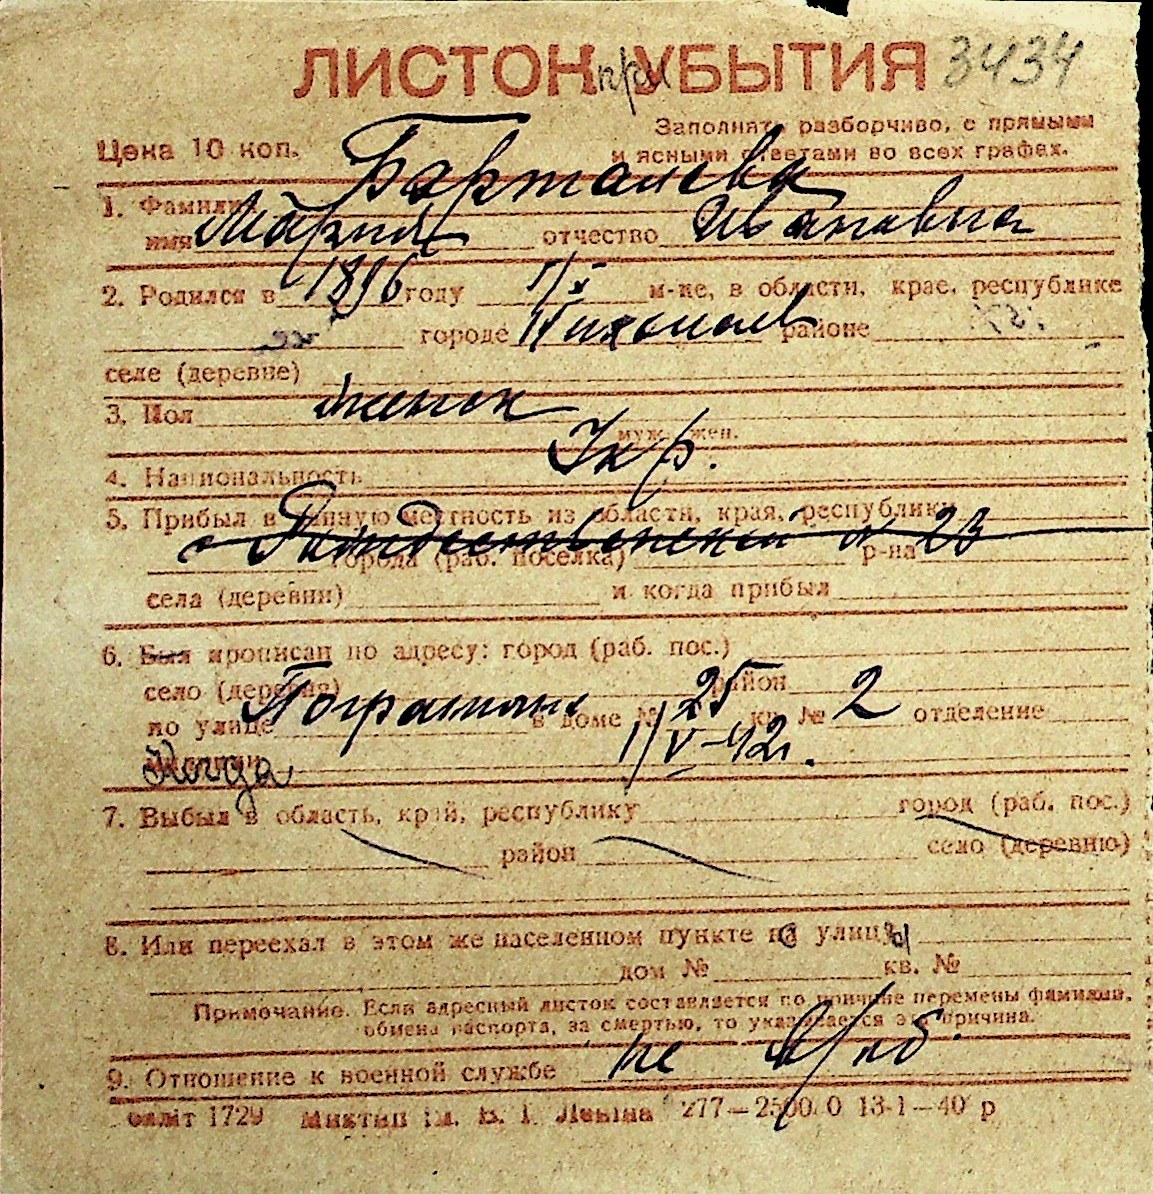 ЛИСТОК при УБЫТИЯ 3434
Заполнять разборчиво, с прямыми
Цена 10 коп. и ясными ответами во всех графах.
Барталева
1. Фамилия
имя Мария отчество Ивановна
2. Родился в 1896 году 1/X м-це, в области, крае, республике
городе Николаев районе
селе (деревне)
3. Пол женск
муж. жен.
4. Национальность Укр.
5. Прибыл в данную местность из области, края, республики
с Рождественской № 23
города (раб. поселка) р-на
села (деревни) и когда прибыл
6. Был прописан по адресу: город (раб. пос.)
село (деревня) район
по улице Погранична в доме № 25 кв. № 2 отделение
милиции Когда 1/V-42г.
7. Выбыл в область, край, республику город (раб. пос.)
район село (деревню)
8. Или переехал в этом же населенном пункте с улицы
дом № кв. №
Примечание. Если адресный листок составляется по причине перемены фамилии,
обмена паспорта, за смертью, то указывается эта причина.
9. Отношение к военной службе не в/об.
1729 им. В. І. Леніна 277—2500.0 13-1—40 р